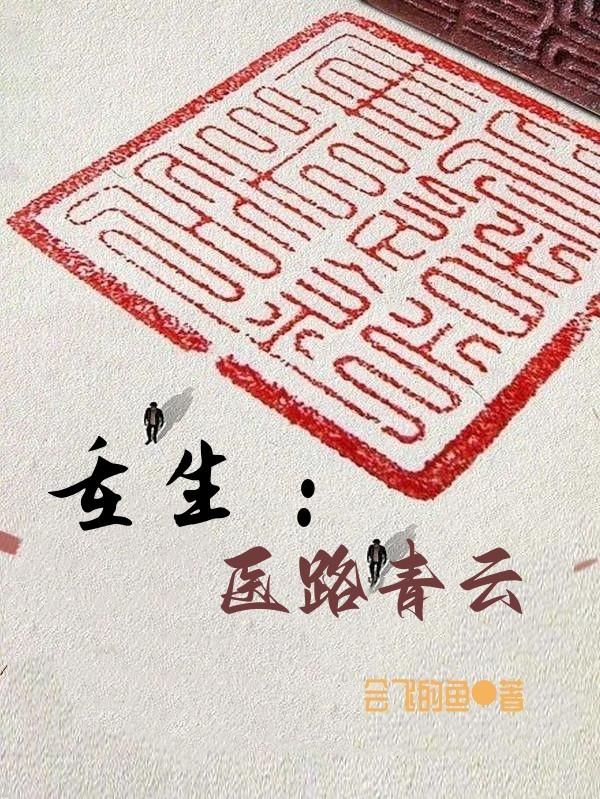 重生：
医路青云
会飞的鱼●著